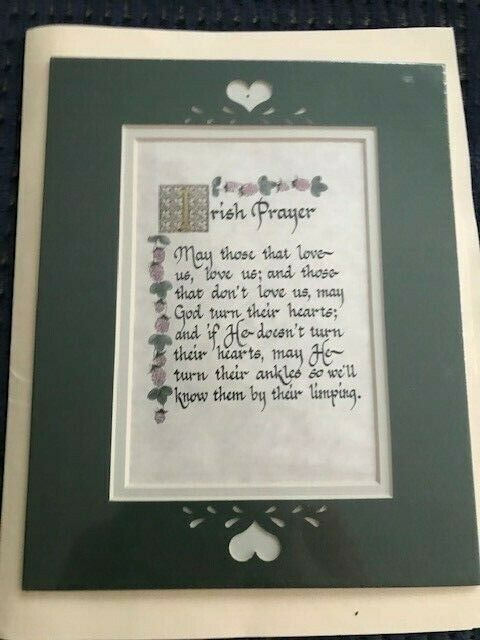 Irish Prayer
May those that love
us, love us; and those
that don't love us, may
God turn their hearts;
and if He doesn't turn
their hearts, may He
turn their ankles so we'll
know them by their limping.